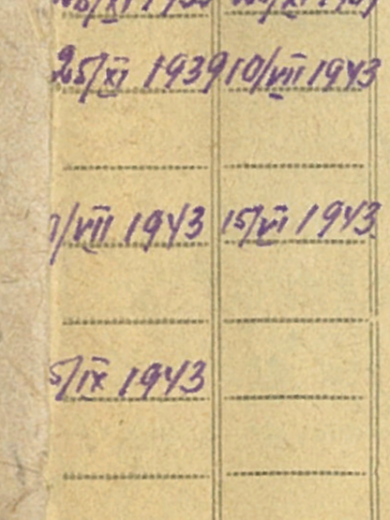 25/XI 1939 10/VII 1943
/VII 1943 15/VI 1943
5/IX 1943